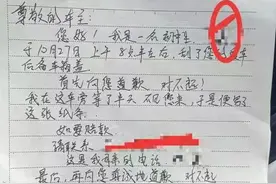 尊敬的车主:
您好!我是一名
于10月27日上午8点左右,刮了您的车
后备箱盖
首先向您道歉 对不起!
我在这车旁等了半天 不见您来,于是便留了
这张纸条.
如要赔款
请联系
这是我 的电话
最后,再向您 地道歉 对不起